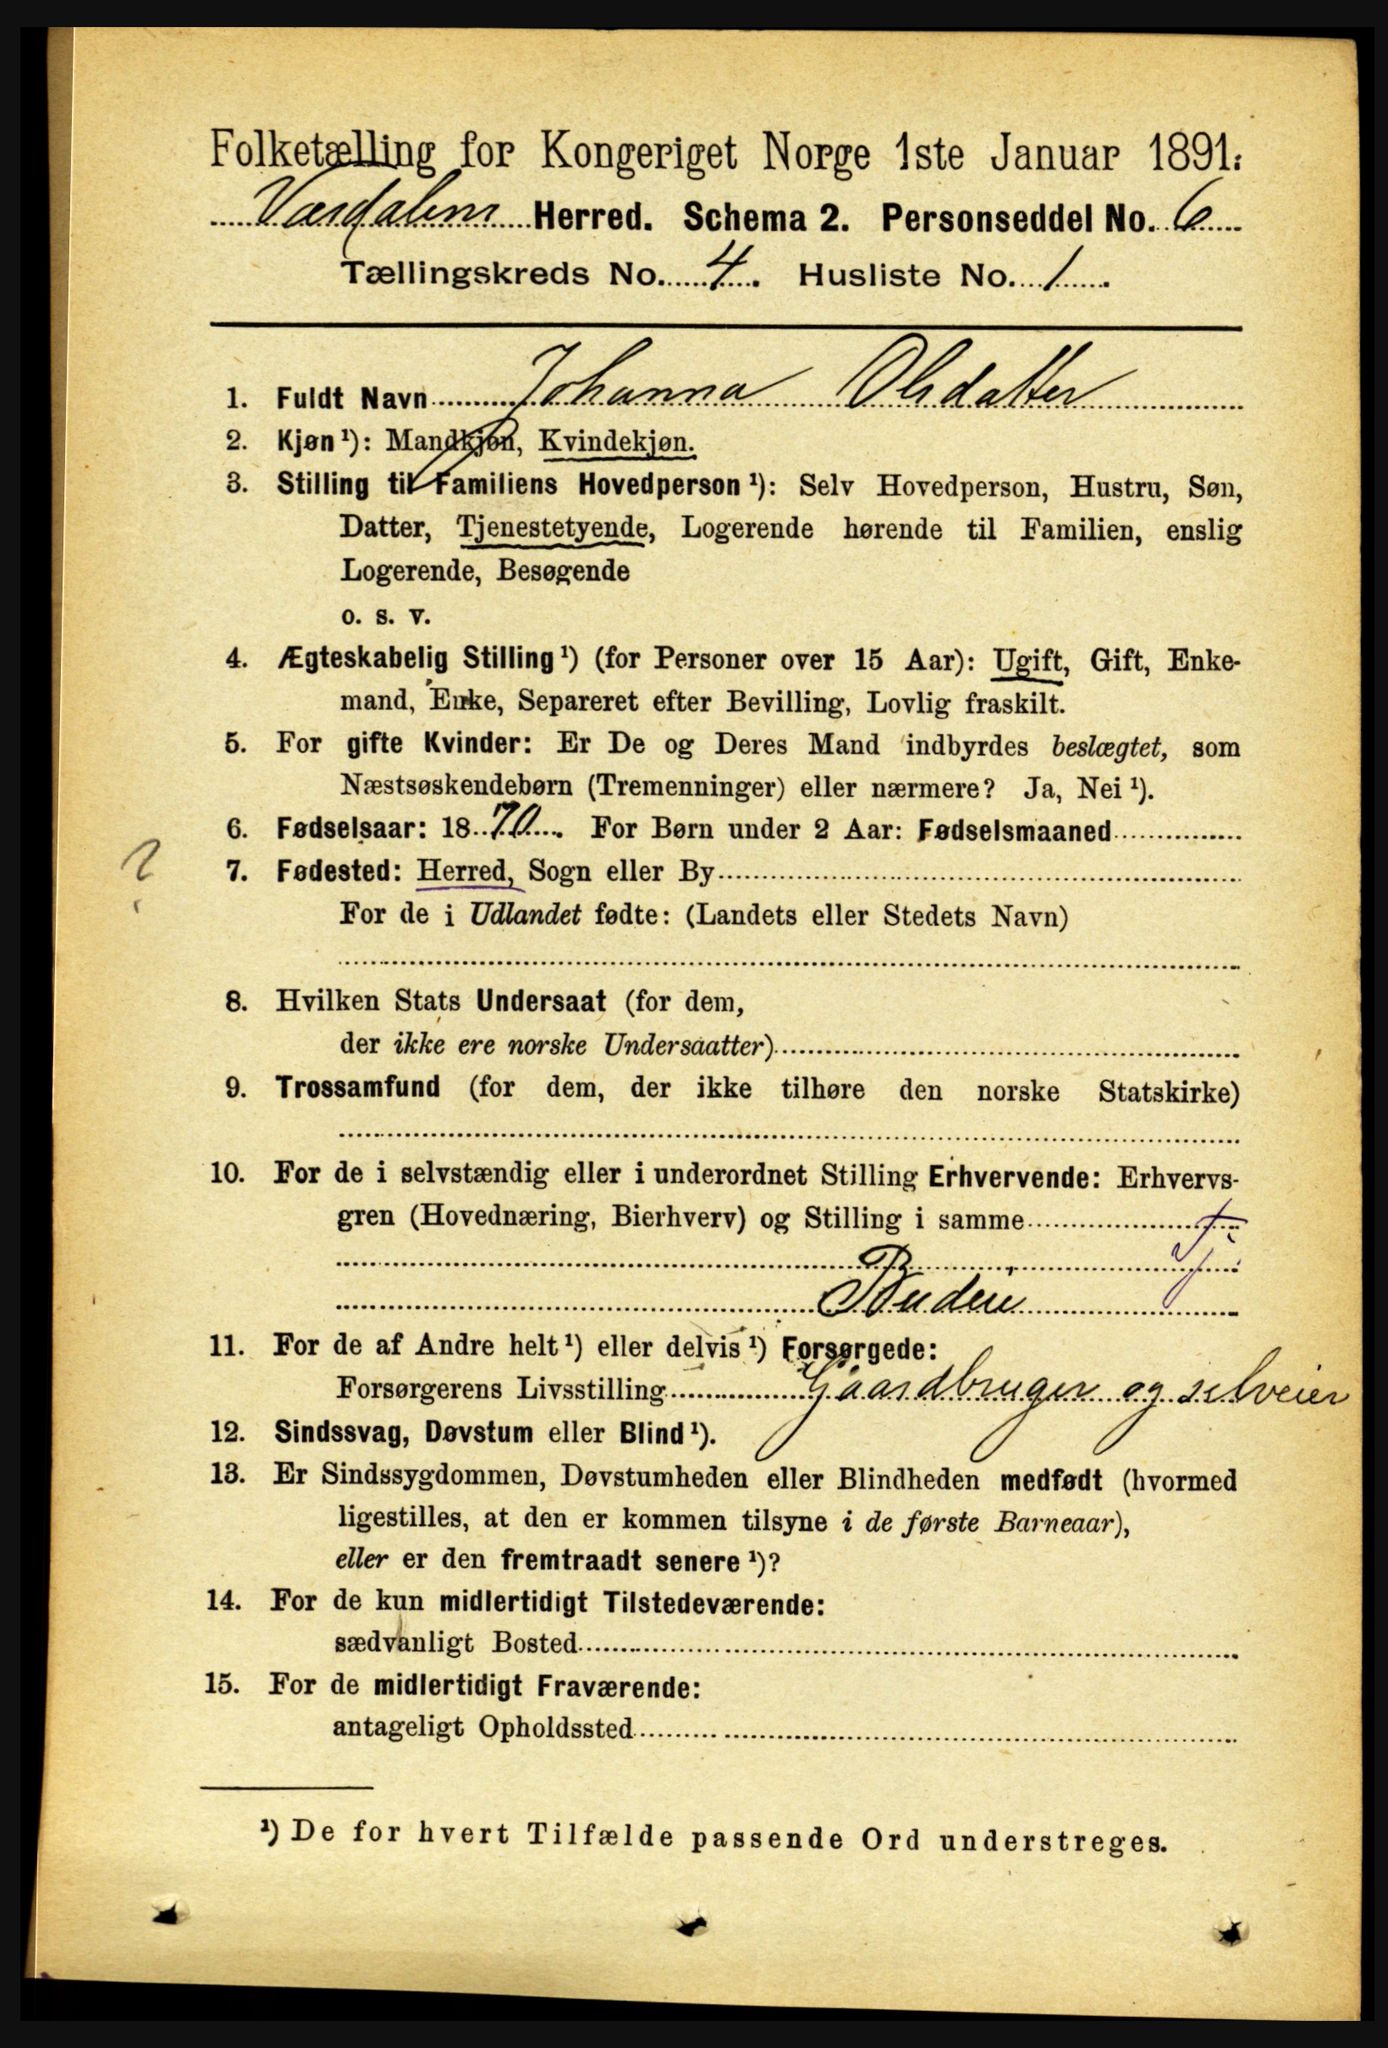 Folketælling for Kongeriget Norge 1ste Januar 1891.
Værdalens Herred. Schema 2. Personseddel No. 6
Tællingskreds No. 4. Husliste No. 1
1. Fuldt Navn Johanna Olsdatter
2. Kjøn¹): Mandkjøn, Kvindekjøn.
3. Stilling til Familiens Hovedperson¹): Selv Hovedperson, Hustru, Søn,
Datter, Tjenestetyende, Logerende hørende til Familien, enslig
Logerende, Besøgende
o. s. v.
4. Ægteskabelig Stilling¹) (for Personer over 15 Aar): Ugift, Gift, Enke-
mand, Enke, Separeret efter Bevilling, Lovlig fraskilt.
5. For gifte Kvinder: Er De og Deres Mand indbyrdes beslægtet, som
Næstsøskendebørn (Tremenninger) eller nærmere? Ja, Nei¹).
6. Fødselsaar: 1870. For Børn under 2 Aar: Fødselsmaaned
?
7. Fødested: Herred, Sogn eller By
For de i Udlandet fødte: (Landets eller Stedets Navn)
8. Hvilken Stats Undersaat (for dem,
der ikke ere norske Undersaatter)
9. Trossamfund (for dem, der ikke tilhøre den norske Statskirke)
10. For de i selvstændig eller i underordnet Stilling Erhvervende: Erhvervs-
gren (Hovednæring, Bierhverv) og Stilling i samme
Tj
Budeie
11. For de af Andre helt¹) eller delvis¹) Forsørgede:
Forsørgerens Livsstilling Gaardbruger og selveier
12. Sindssvag, Døvstum eller Blind¹).
13. Er Sindssygdommen, Døvstumheden eller Blindheden medfødt (hvormed
ligestilles, at den er kommen tilsyne i de første Barneaar),
eller er den fremtraadt senere¹)?
14. For de kun midlertidigt Tilstedeværende:
sædvanligt Bosted
15. For de midlertidigt Fraværende:
antageligt Opholdssted
¹) De for hvert Tilfælde passende Ord understreges.